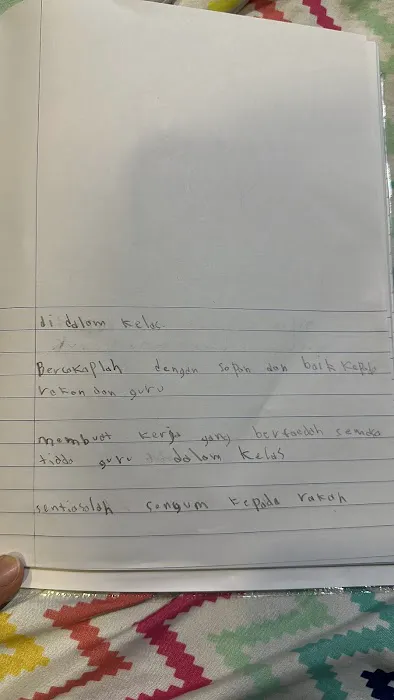 di dalam kelas.
Bercakaplah dengan sopan dan baik kepada
rakan dan guru
membuat kerja yang berfaedah semasa
tiada guru dalam kelas
sentiasalah sengum kepada rakan